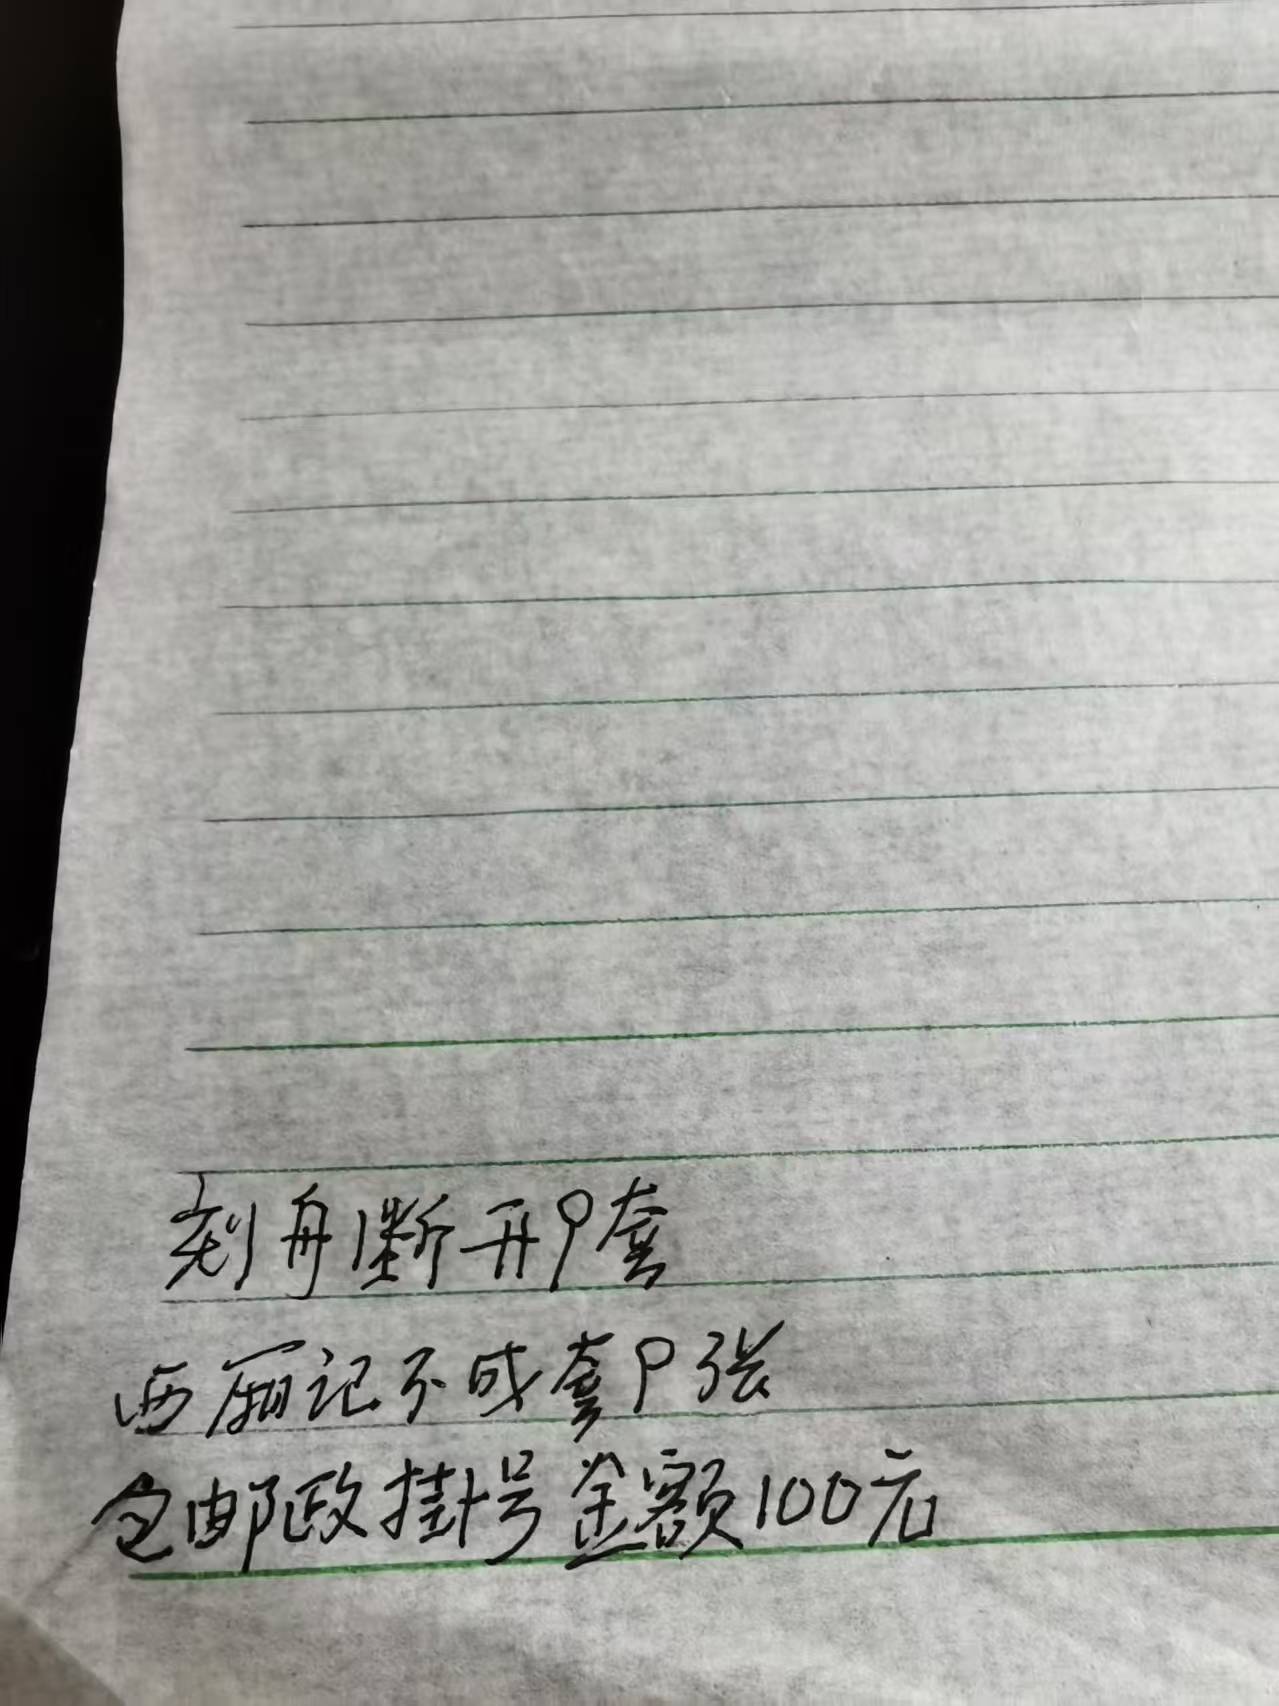 刻舟断开9套
西厢记不成套9张
包邮政挂号金额100元